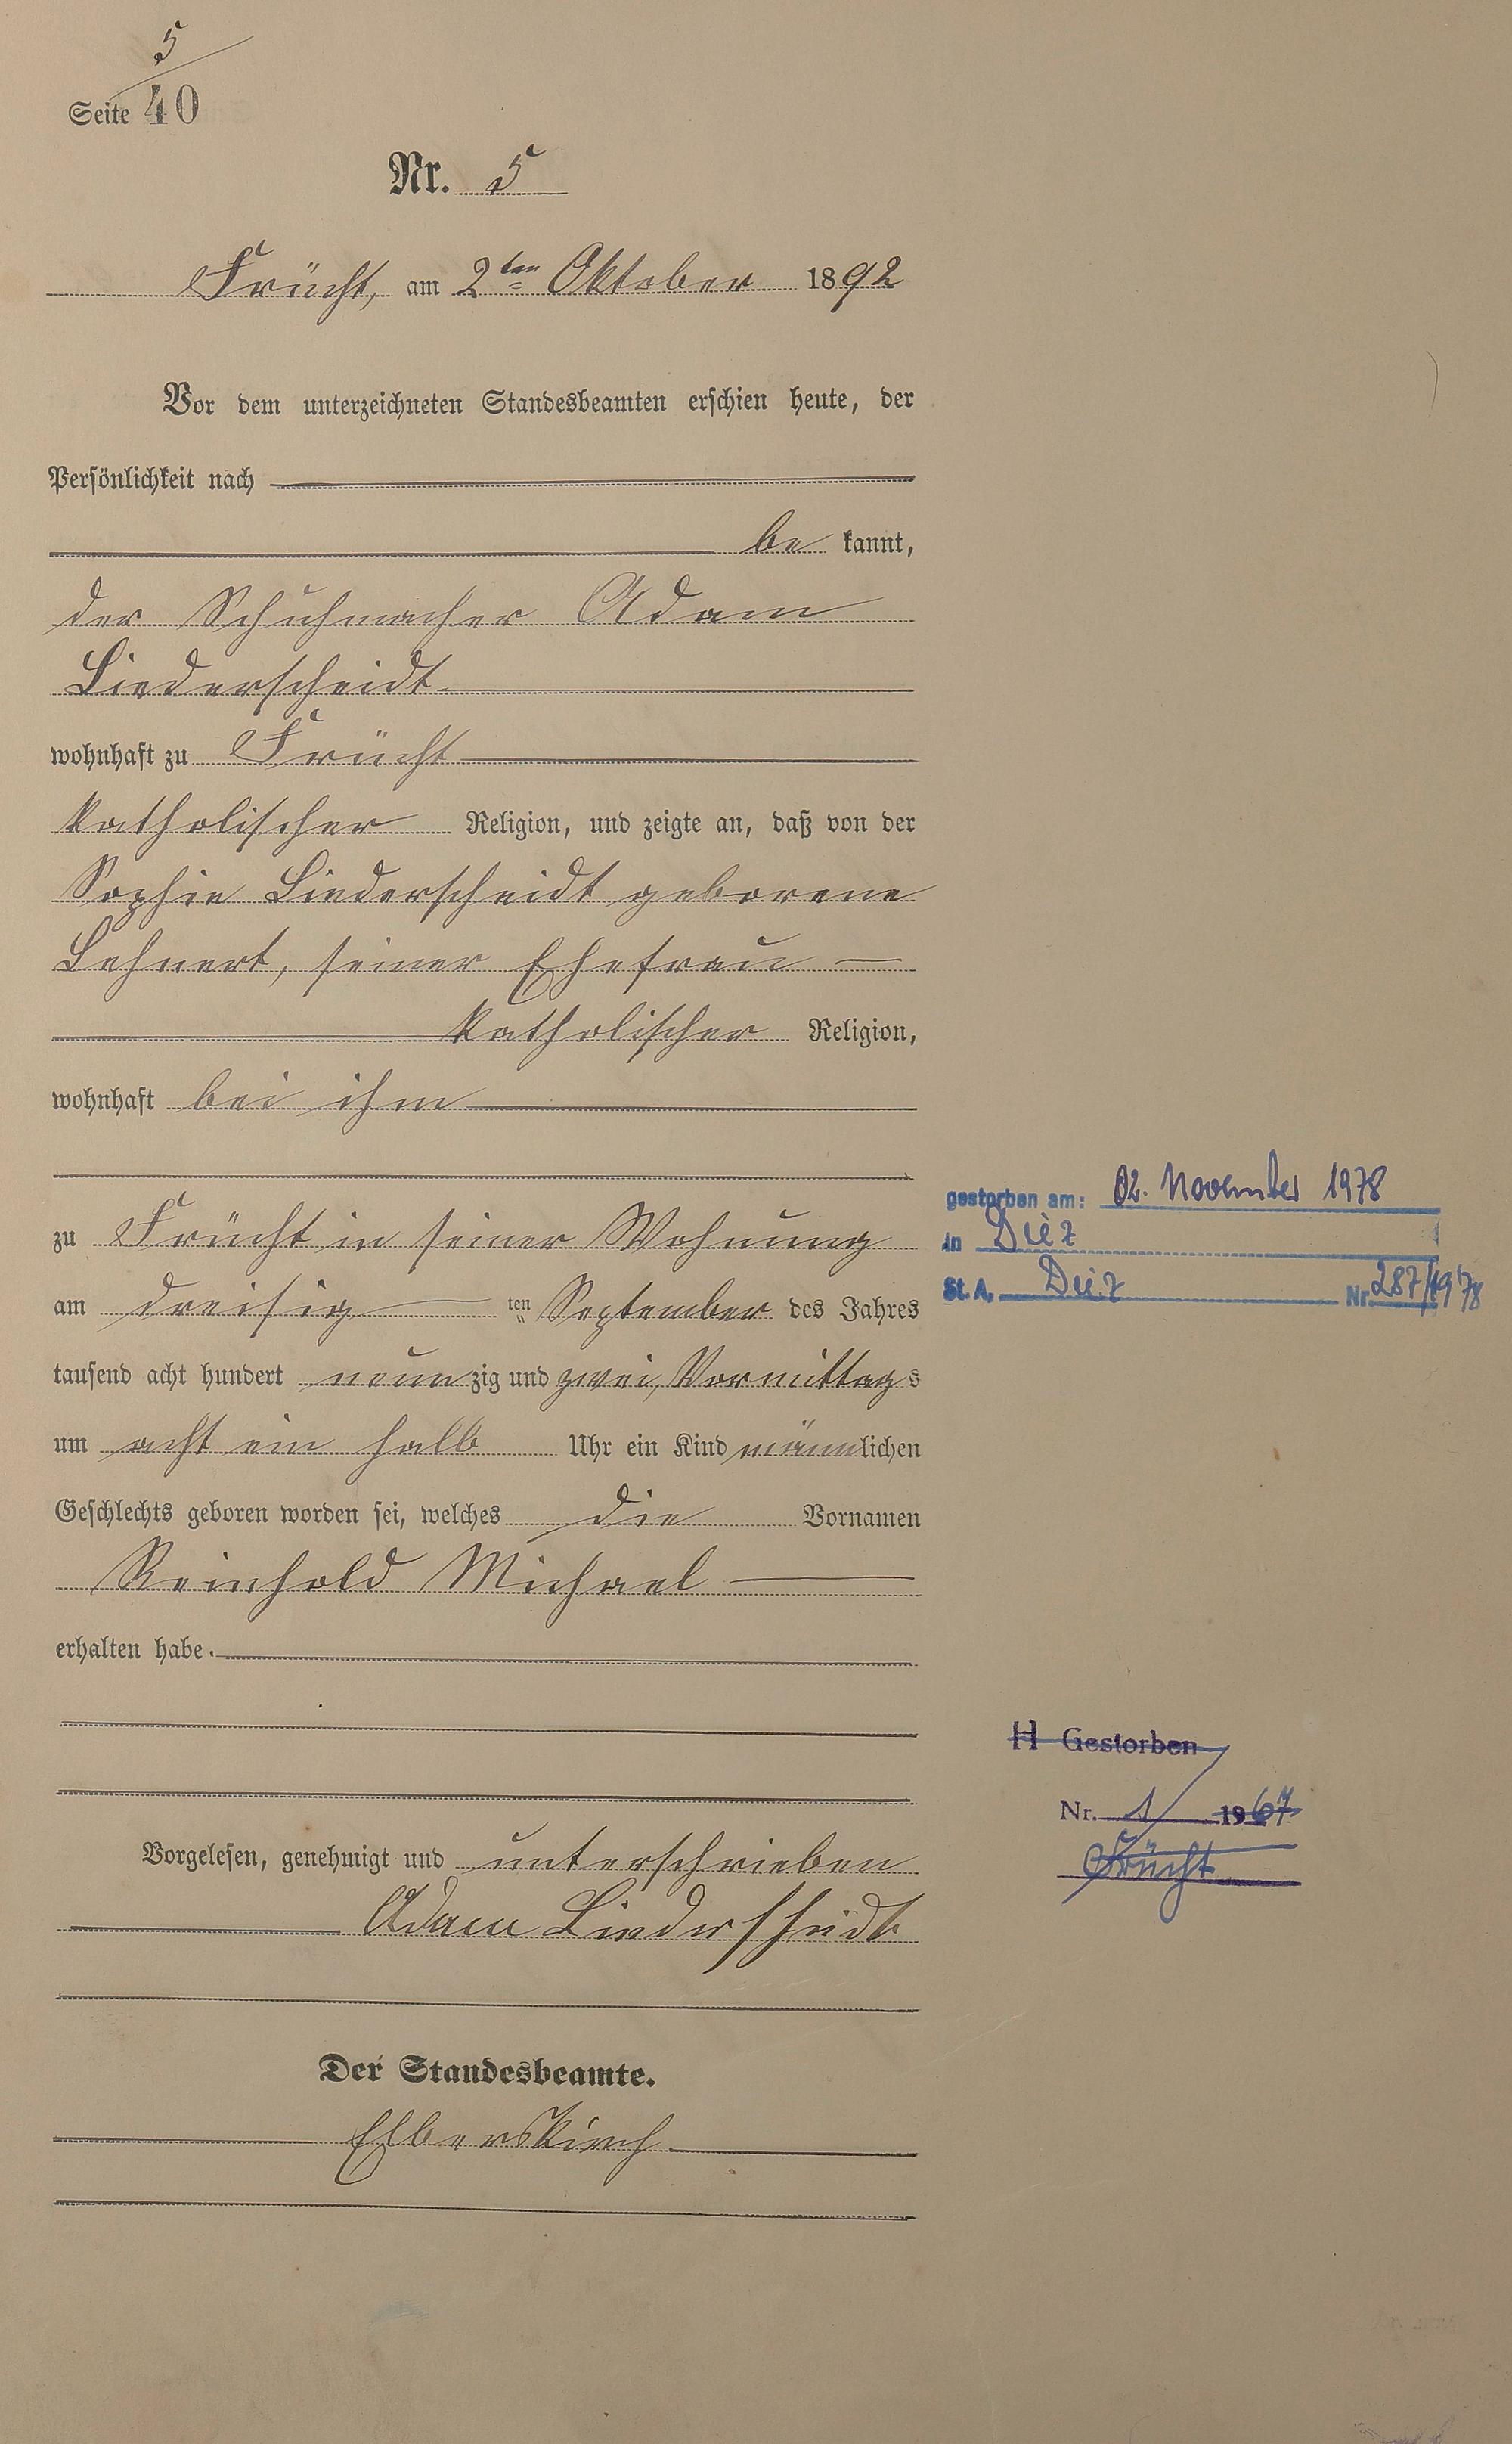 5
Seite 40
Nr. 5
Frücht, am 2ten Oktober 1892
Vor dem unterzeichneten Standesbeamten erschien heute, der
Persönlichkeit nach
be kannt,
der Schuhmacher Adam
Liederscheidt
wohnhaft zu Frücht
katholischer Religion, und zeigte an, daß von der
Sophie Liederscheidt geborene
Lehnert, seiner Ehefrau
katholischer Religion,
wohnhaft bei ihm
zu Frücht in seiner Wohnung
am dreisig ten September des Jahres
tausend acht hundert neunzig und zwei, Vormittags
um acht ein halb Uhr ein Kind männlichen
Geschlechts geboren worden sei, welches die Vornamen
Reinhold Michael
erhalten habe.
Vorgelesen, genehmigt und unterschrieben
Adam Liederscheidt
Der Standesbeamte.
Elberskirch
gestorben am: 02. November 1978
in Diez
St. A. Diez Nr. 287/1978
H Gestorben
Nr. 1 1967
Frücht